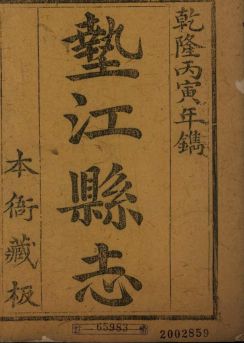 乾隆丙寅年鐫
墊江縣志
本衙藏板
65983
2002859